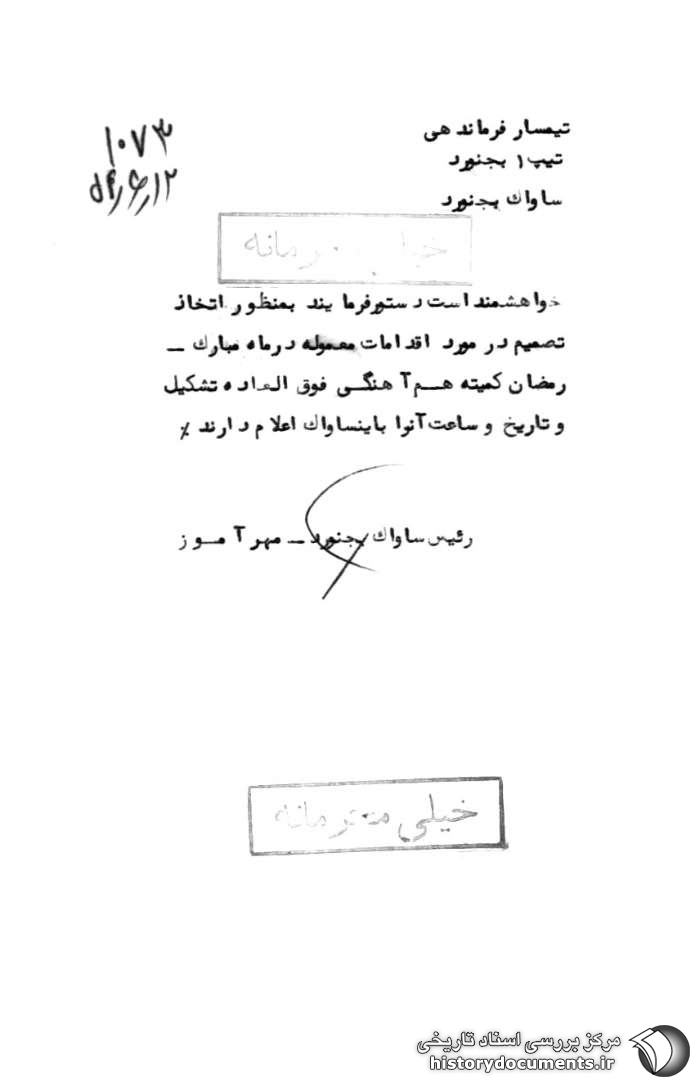 ۱۰۷۳
تیمسار فرماندهی
تیپ ۱ بجنورد
ساواك بجنورد
خیلی محرمانه
خواهشمند است دستور فرمایند بمنظور اتخاذ
تصمیم در مورد اقدامات معموله در ماه مبارك –
رمضان کمیته هم‌آهنگی فوق العاده تشکیل
و تاریخ و ساعت آنرا باینساواك اعلام دارند ٪
رئیس ساواك بجنورد – مهرآموز
خیلی محرمانه
مرکز بررسی اسناد تاریخی
historydocuments.ir